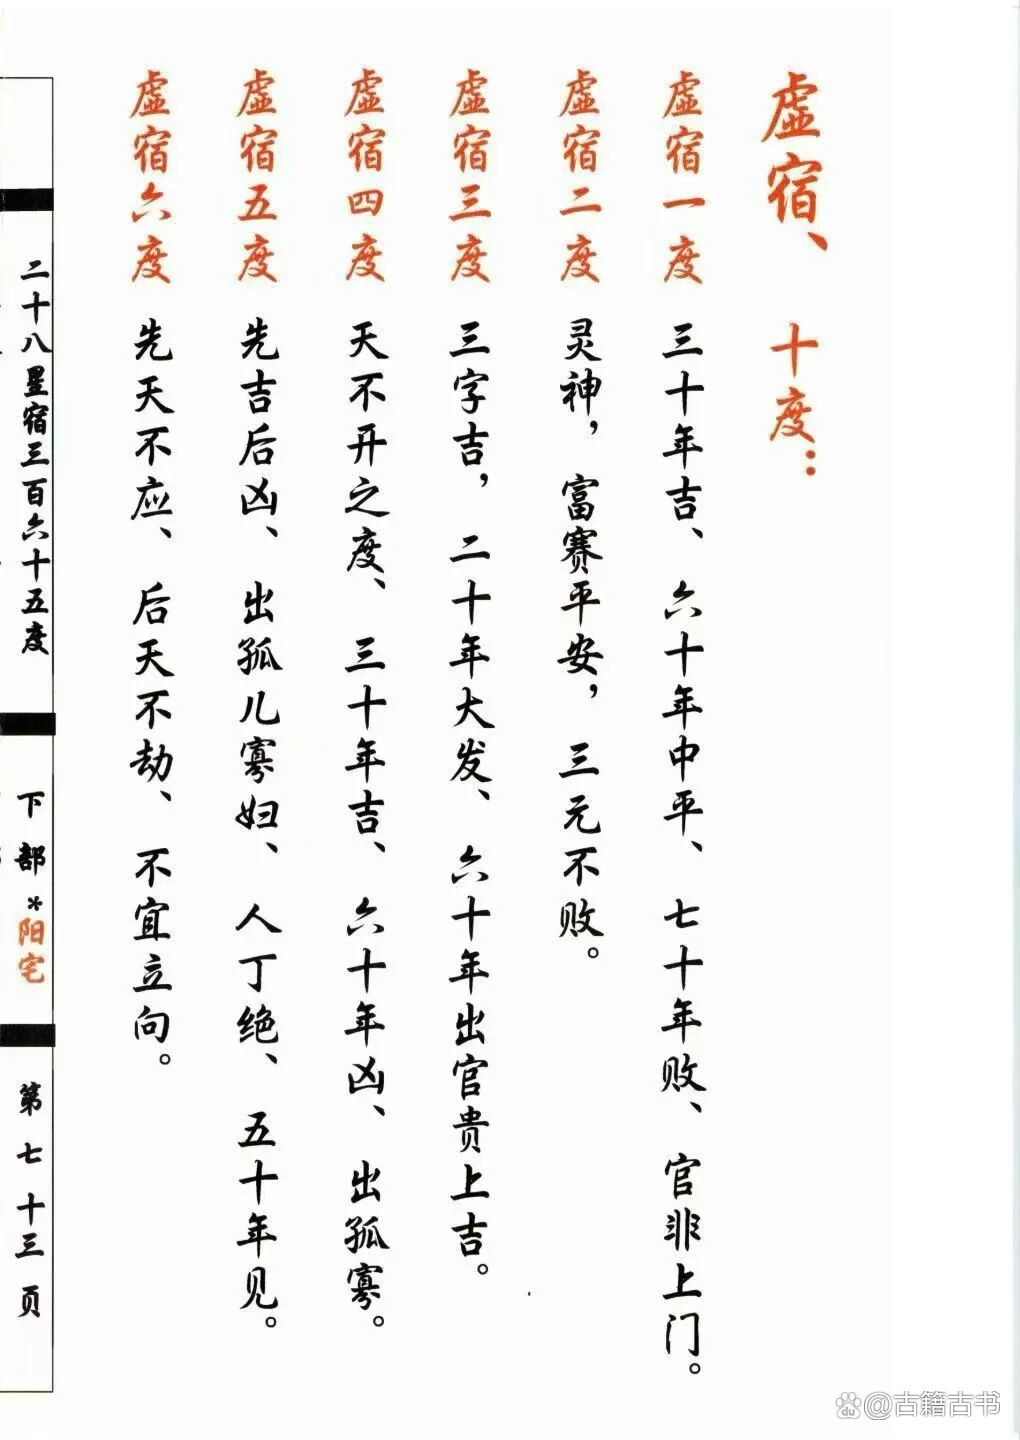 虚宿、 十度：
虚宿一度 三十年吉、六十年中平、七十年败、官非上门。
虚宿二度 灵神，富赛平安，三元不败。
虚宿三度 三字吉，二十年大发、六十年出官贵上吉。
虚宿四度 天不开之度、三十年吉、六十年凶、出孤寡。
虚宿五度 先吉后凶、出孤儿寡妇、人丁绝、五十年见。
虚宿六度 先天不应、后天不劫、不宜立向。
二十八星宿三百六十五度 下部*阳宅 第七十三页
du @古籍古书